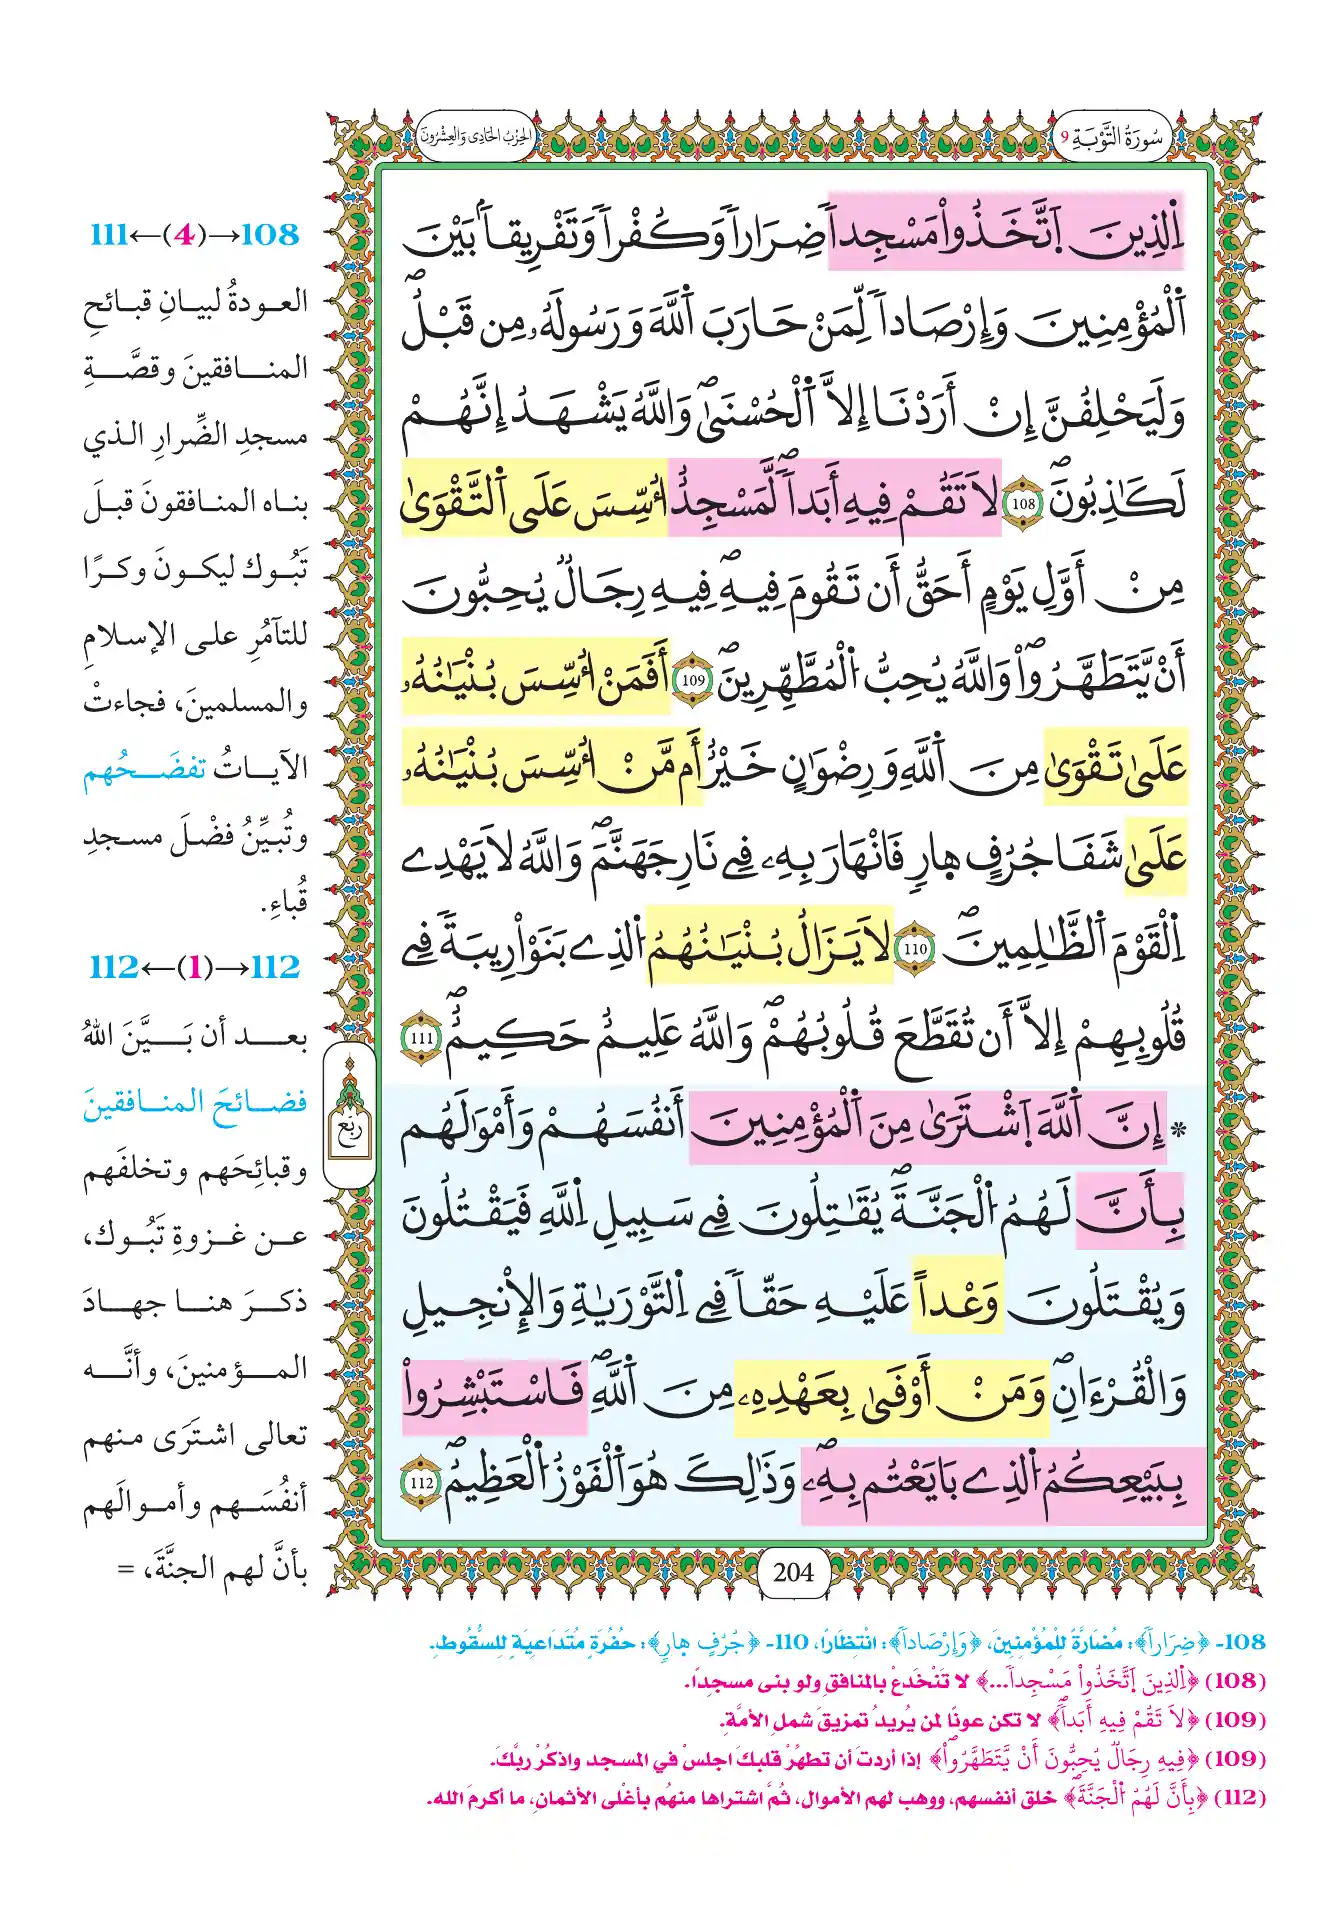 سُورَةُ التَّوْبَةِ 9
الحِزْبُ الحَادِي وَالعِشْرُونَ
اِلذِينَ اَتَّخَذُواْ مَسْجِداٗ ضِرَاراٗ وَكُفْراٗ وَتَفْرِيقاَۢ بَيْنَ
اَلْمُؤْمِنِينَ وَإِرْصَاداٗ لِّمَنْ حَارَبَ اَللَّهَ وَرَسُولَهُۥ مِن قَبْلُۖ
وَلَيَحْلِفُنَّ إِنْ أَرَدْنَا إِلاَّ اَلْحُسْنَىٰۖ وَاللَّهُ يَشْهَدُ إِنَّهُمْ
لَكَٰذِبُونَۖ 108 لَا تَقُمْ فِيهِ أَبَداٗۖ لَّمَسْجِدٌ اُسِّسَ عَلَى اَلتَّقْوَىٰ
مِنْ أَوَّلِ يَوْمٍ أَحَقُّ أَن تَقُومَ فِيهِۖ فِيهِ رِجَالٞ يُحِبُّونَ
أَنْ يَّتَطَهَّرُواْۖ وَاللَّهُ يُحِبُّ اُلْمُطَّهِّرِينَۖ 109 أَفَمَنْ اُسِّسَ بُنْيَٰنُهُۥ
عَلَىٰ تَقْوَىٰ مِنَ اَللَّهِ وَرِضْوَٰنٍ خَيْرٌ أَم مَّنْ اُسِّسَ بُنْيَٰنُهُۥ
عَلَىٰ شَفَا جُرُفٍ هِارٖ فَانْهَارَ بِهِۦ فِي نَارِ جَهَنَّمَۖ وَاللَّهُ لَا يَهْدِي
اِلْقَوْمَ اَلظَّٰلِمِينَۖ 110 لَا يَزَالُ بُنْيَٰنُهُمُ اُلذِي بَنَوْاْ رِيبَةٗ فِي
قُلُوبِهِمْ إِلاَّ أَن تُقَطَّعَ قُلُوبُهُمْۖ وَاللَّهُ عَلِيمٌ حَكِيمٌۖ 111
* إِنَّ اَللَّهَ اَشْتَرَىٰ مِنَ اَلْمُؤْمِنِينَ أَنفُسَهُمْ وَأَمْوَٰلَهُم
بِأَنَّ لَهُمُ اُلْجَنَّةَۖ يُقَٰتِلُونَ فِي سَبِيلِ اِللَّهِ فَيَقْتُلُونَ
وَيُقْتَلُونَ وَعْداً عَلَيْهِ حَقّاٗ فِي اِلتَّوْرَيٰةِ وَالْإِنْجِيلِ
وَالْقُرْءَانِۖ وَمَنْ أَوْفَىٰ بِعَهْدِهِۦ مِنَ اَللَّهِۖ فَاسْتَبْشِرُواْ
بِبَيْعِكُمُ اُلذِي بَايَعْتُم بِهِۦۖ وَذَٰلِكَ هُوَ اَلْفَوْزُ اُلْعَظِيمُۖ 112
ربع
204
108←(4)→111
العودةُ لبيانِ قبائحِ
المنافقينَ وقصَّةِ
مسجدِ الضِّرارِ الذي
بناه المنافقونَ قبلَ
تَبُوك ليكونَ وكرًا
للتآمُرِ على الإسلامِ
والمسلمينَ، فجاءتْ
الآياتُ تفضَحُهم
وتُبيِّنُ فضْلَ مسجدِ
قُباءِ.
112←(1)→112
بعد أن بَيَّنَ اللهُ
فضائحَ المنافقينَ
وقبائِحَهم وتخلفَهم
عن غزوةِ تَبُوك،
ذكرَ هنا جهادَ
المؤمنينَ، وأنَّه
تعالى اشتَرَى منهم
أنفُسَهم وأموالَهم
بأنَّ لهم الجنَّةَ، =
108- ﴿ضِرَاراٗ﴾: مُضَارَّةً لِلْمُؤْمِنِينَ، ﴿وَإِرْصَاداٗ﴾: انْتِظَارًا، 110- ﴿جُرُفٍ هِارٖ﴾: حُفْرَةٍ مُتَدَاعِيَةٍ لِلسُّقُوطِ.
(108) ﴿اِلذِينَ اَتَّخَذُواْ مَسْجِداٗ...﴾ لا تَنْخَدعْ بالمنافقِ ولو بنى مسجدًا.
(109) ﴿لَا تَقُمْ فِيهِ أَبَداٗۖ﴾ لا تكن عونًا لمن يُريدُ تمزيقَ شملِ الأمَّةِ.
(109) ﴿فِيهِ رِجَالٞ يُحِبُّونَ أَنْ يَّتَطَهَّرُواْۖ﴾ إذا أردتَ أن تطهُرَ قلبكَ اجلسْ في المسجد واذكُرْ ربَّكَ.
(112) ﴿بِأَنَّ لَهُمُ اُلْجَنَّةَۖ﴾ خلق أنفسهم، ووهب لهم الأموال، ثُمَّ اشتراها منهُم بأغْلى الأثمانِ، ما أكرمَ الله.